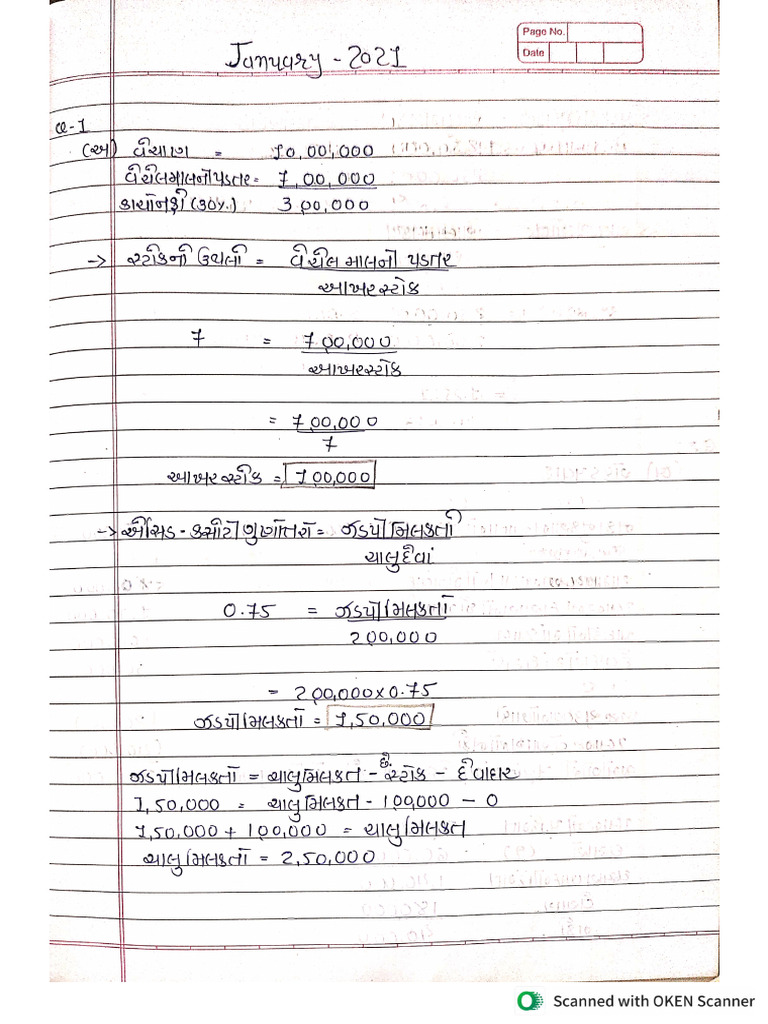 Page No.
Date
January - 2021
Q-1
(અ) વેચાણ = 10,00,000
વેચેલમાલની પડતર = 7,00,000
કાચોનફો (30%) 300,000
→ સ્ટોકની ઉથલો = વેચેલ માલની પડતર
આખરસ્ટોક
7 = 700,000
આખરસ્ટોક
= 700,000
7
આખર સ્ટોક = 100,000
→ એસિડ - કસોટી ગુણોતરો = ઝડપી મિલકતો
ચાલુ દેવાં
0.75 = ઝડપી મિલકતો
200,000
= 200,000 x 0.75
ઝડપી મિલકતો = 1,50,000
ઝડપી મિલકતો = ચાલુ મિલકત - છે. સ્ટોક - દેવાદાર
1,50,000 = ચાલુ મિલકત - 100,000 - 0
1,50,000 + 100,000 = ચાલુ મિલકત
ચાલુ મિલકતો = 2,50,000
Scanned with OKEN Scanner